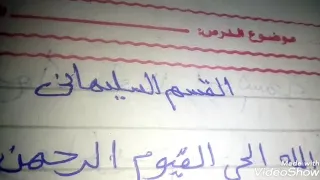 موضوع الدرس:
القسم السليمانى
الله الحي القيوم الرحمن
Made with
VideoShow